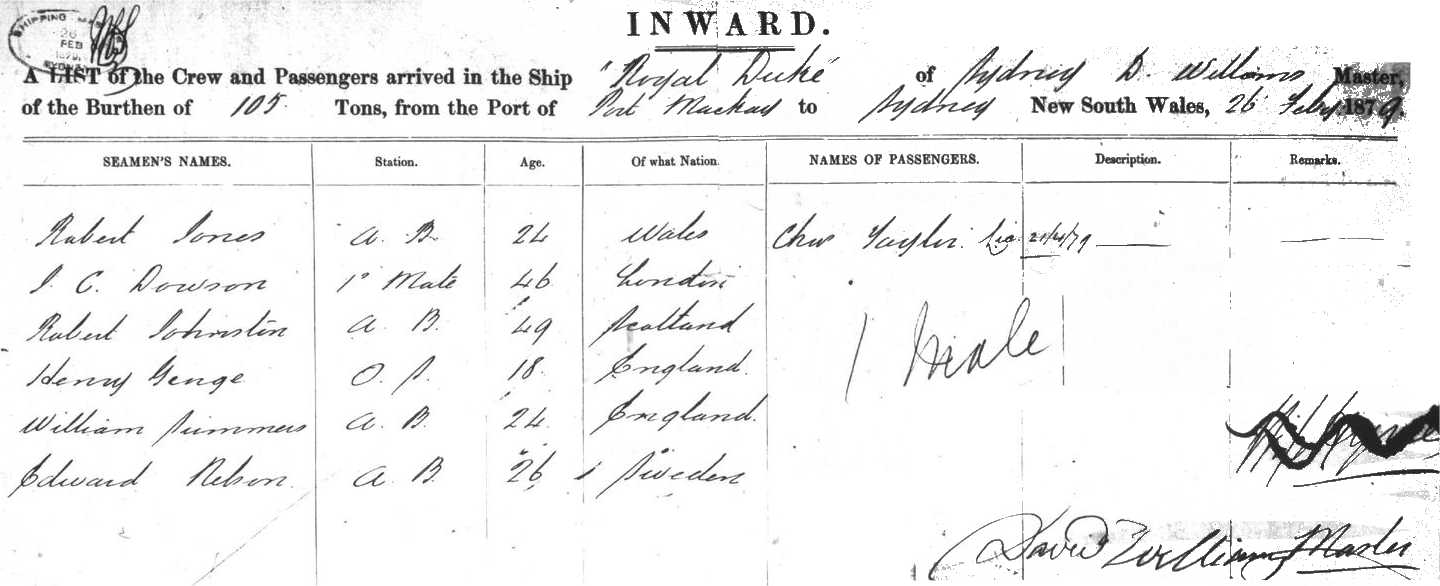 SHIPPING
26
FEB
1879
SYDNEY
INWARD.
A LIST of the Crew and Passengers arrived in the Ship "Royal Duke" of Sydney D. Williams Master,
of the Burthen of 105 Tons, from the Port of Port Mackay to Sydney New South Wales, 26 Feby 1879.
SEAMEN'S NAMES. Station. Age. Of what Nation. NAMES OF PASSENGERS. Description. Remarks.
Robert Jones A. B. 24 Wales Chas Taylor Lic 21/4/79
J. C. Dowson 1st Mate 46 London
Robert Johnston A. B. 49 Scotland
1 Male
Henry Genge O. S. 18 England
William Summers A. B. 24 England
Edward Nelson A. B. 26 Sweden
David Williams Master